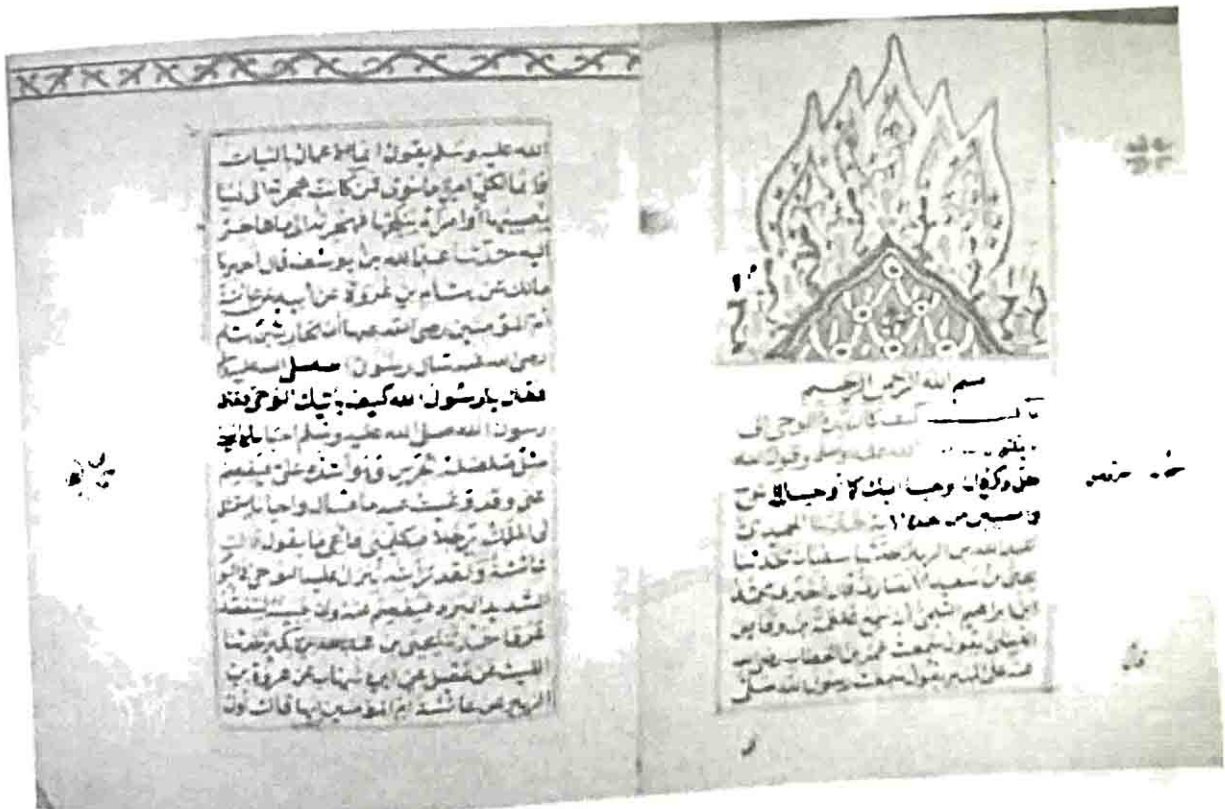 بسم الله الرحمن الرحيم
كيف كان بدء الوحي الى
الله عليه وسلم وقول الله
جل ذكره انا اوحينا اليك كما اوحينا الى نوح
والنبيين من بعده حدثنا الحميدي
عبد الله بن الزبير حدثنا سفيان حدثنا
يحيى بن سعيد الانصاري قال اخبرني محمد
ابن ابراهيم التيمي انه سمع علقمة بن وقاص
الليثي يقول سمعت عمر بن الخطاب رضي
عنه على المنبر يقول سمعت رسول الله صلى
الله عليه وسلم يقول انما الاعمال بالنيات
وانما لكل امرئ ما نوى فمن كانت هجرته الى دنيا
يصيبها او امرأة ينكحها فهجرته الى ما هاجر
اليه حدثنا عبد الله بن يوسف قال اخبرنا
مالك عن هشام بن عروة عن ابيه عن عائشة
ام المؤمنين رضي الله عنها ان الحارث بن هشام
رضي الله عنه سأل رسول الله صلى الله عليه
فقال يا رسول الله كيف يأتيك الوحي فقال
رسول الله صلى الله عليه وسلم احيانا يأتيني
مثل صلصلة الجرس وهو اشده علي فيفصم
عني وقد وعيت عنه ما قال واحيانا يتمثل
لي الملك رجلا فيكلمني فاعي ما يقول قالت
عائشة ولقد رأيته ينزل عليه الوحي في اليوم
الشديد البرد فيفصم عنه وان جبينه ليتفصد
عرقا حدثنا يحيى بن عبد الله بن بكير حدثنا
الليث عن عقيل عن ابن شهاب عن عروة بن
الزبير عن عائشة ام المؤمنين انها قالت اول